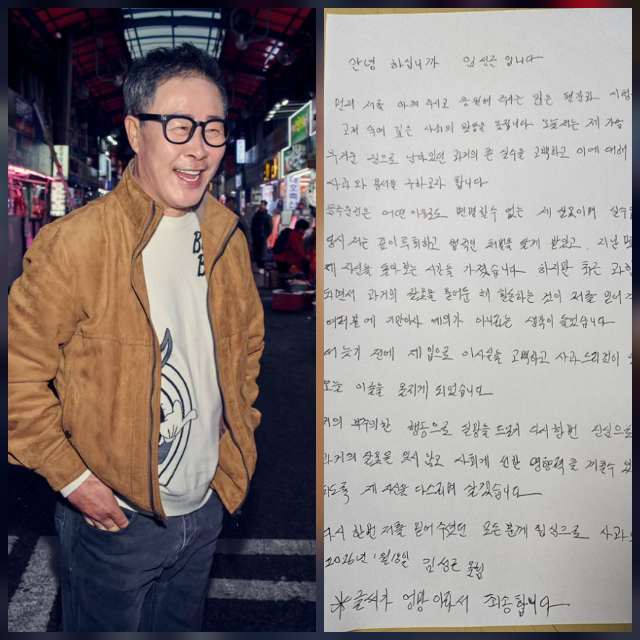 안녕 하십니까 임성근 입니다
먼저 저를 아껴 주시고 응원해 주시는 많은 팬분과 시청
고개 숙여 깊은 사죄의 말씀을 드립니다 오늘 저는 제 가슴
무거운 짐으로 남아있던 과거의 큰 실수를 고백하고 이에 대해
사과와 용서를 구하고자 합니다
음주운전은 어떤 이유로도 변명할수 없는 제 잘못이며 실수를
당시 저는 깊이 뉘우치고 법적인 처벌을 달게 받았고 지난 몇
제 자신을 돌아보는 시간을 가졌습니다 하지만 최근 과분
되면서 과거의 잘못을 묻어둔 채 활동하는 것이 저를 믿어주
여러분에 기만이자 예의가 아니라는 생각이 들었습니다
더 늦기 전에 제 입으로 이사실을 고백하고 사과드리는것이
오늘 이글을 올리게 되었습니다
저의 부주의한 행동으로 실망을 드려 다시한번 진심으로
과거의 잘못을 잊지 않고 사회에 선한 영향력을 끼칠수 있
하도록 제 자신을 다스리며 살겠습니다
다시 한번 저를 믿어주셨던 모든 분께 진심으로 사과
2026년 1월 18일 임성근 올림
※글씨가 엉망 이라서 죄송합니다